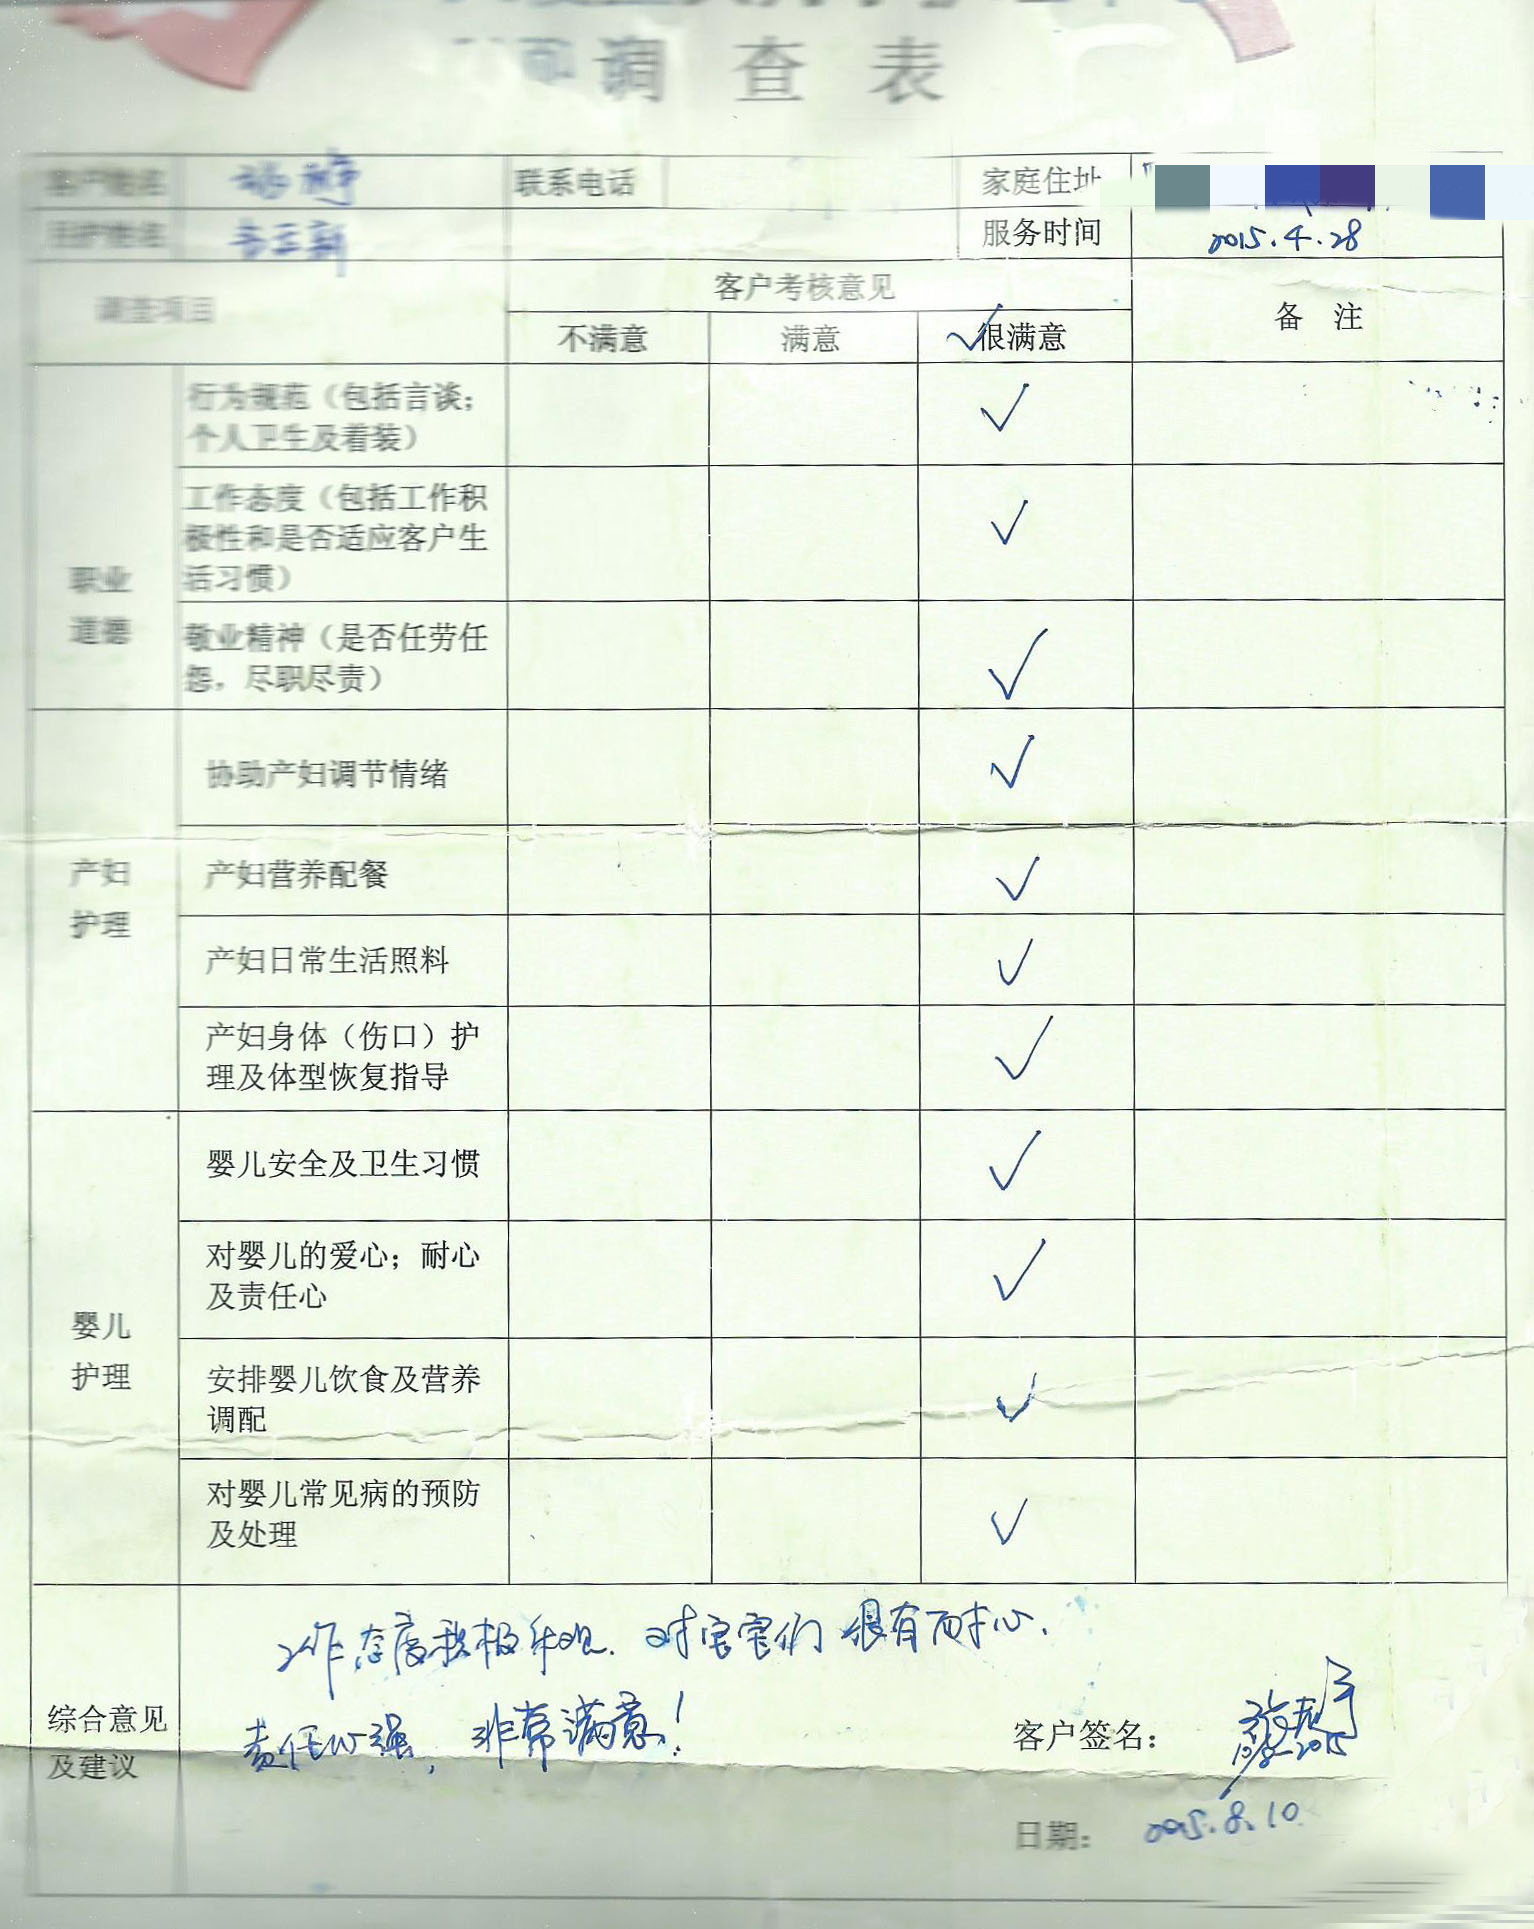 调 查 表
客户姓名 联系电话 家庭住址
月护姓名 服务时间 2015.4.28
调查项目 客户考核意见 备 注
不满意 满意 ✓很满意
职业道德
行为规范（包括言谈；
个人卫生及着装） ✓
工作态度（包括工作积
极性和是否适应客户生
活习惯） ✓
敬业精神（是否任劳任
怨，尽职尽责） ✓
产妇护理
协助产妇调节情绪 ✓
产妇营养配餐 ✓
产妇日常生活照料 ✓
产妇身体（伤口）护
理及体型恢复指导 ✓
婴儿护理
婴儿安全及卫生习惯 ✓
对婴儿的爱心；耐心
及责任心 ✓
安排婴儿饮食及营养
调配 ✓
对婴儿常见病的预防
及处理 ✓
综合意见
及建议
工作态度积极乐观．对宝宝们很有耐心．
责任心强，非常满意！
客户签名：
日期： 2015.8.10